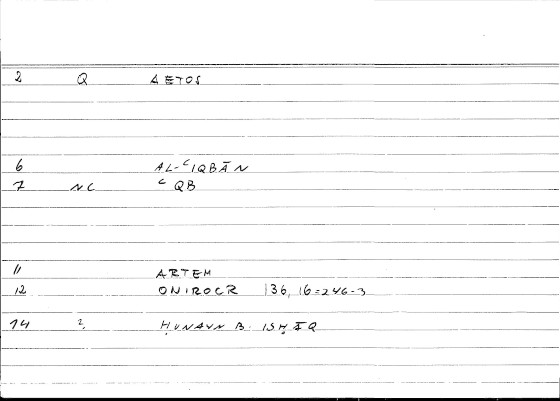 2 Q AETOS
6 AL-ʿIQBĀN
7 NC ʿQB
11 ARTEM
12 ONIROCR 136, 16=246-3
14 2, ḤUNAYN B. ISḤĀQ